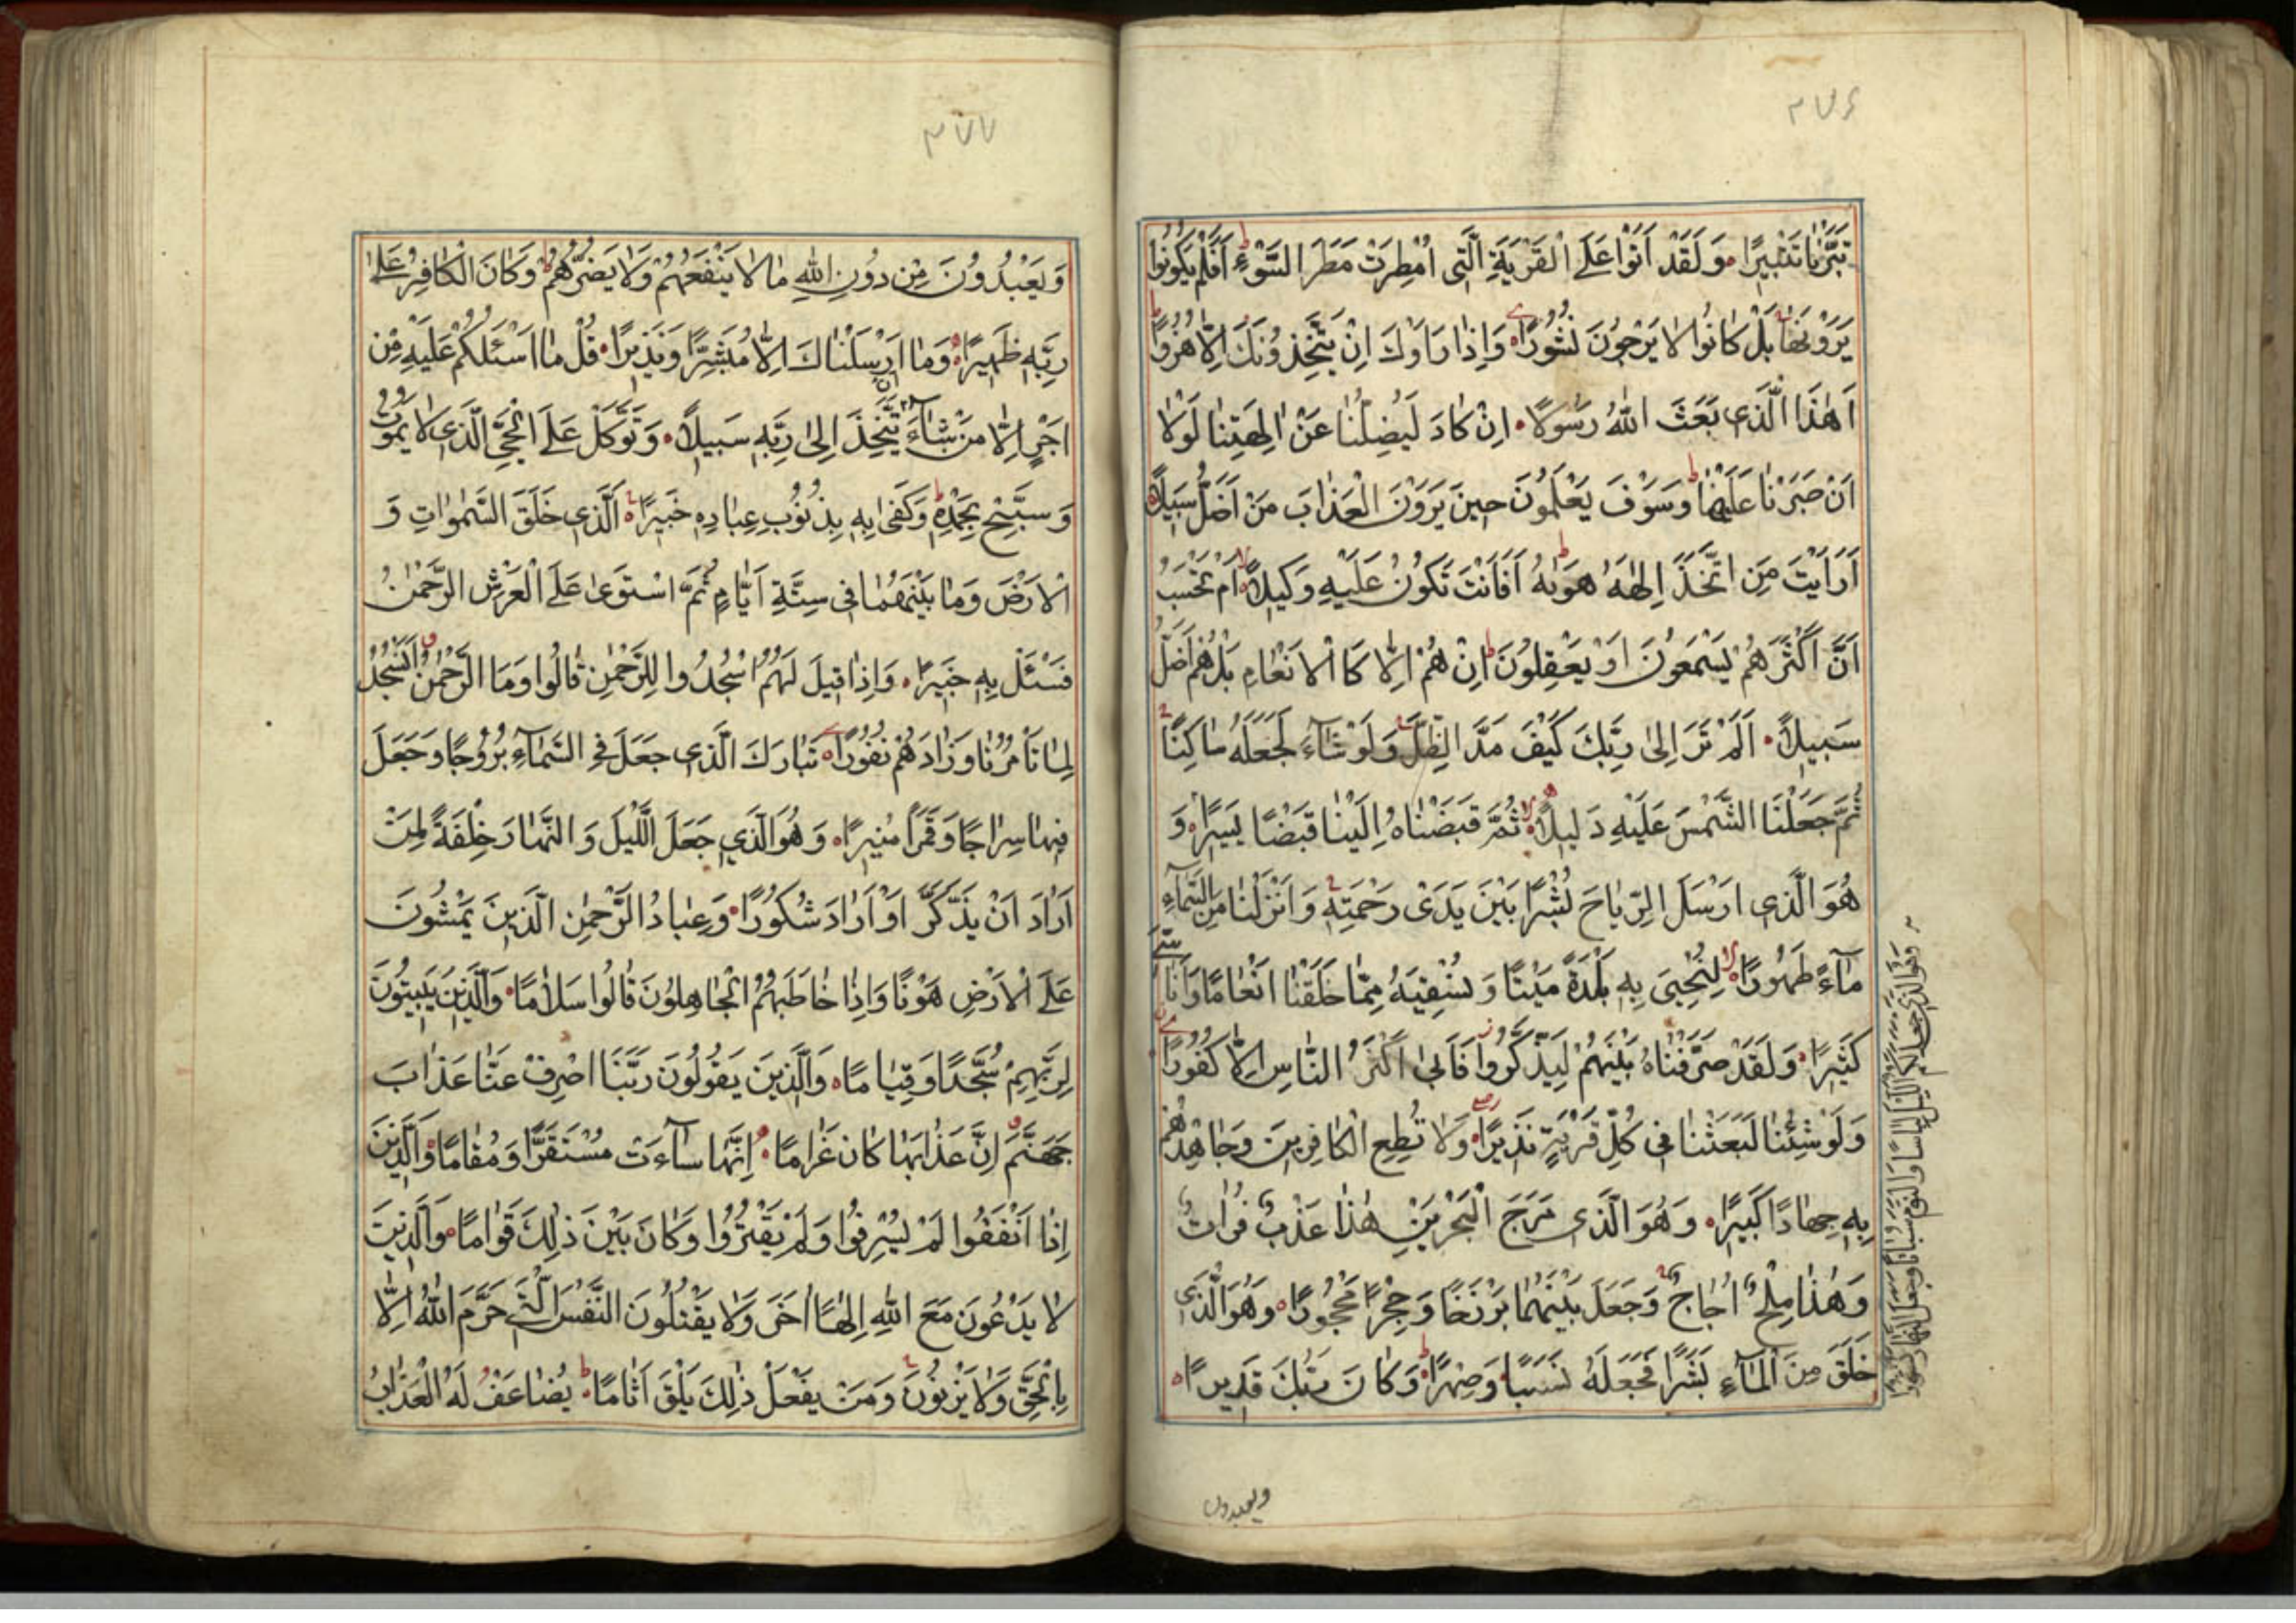 ٣٧۶
تَبَّرْنَا تَتْبِيرًا وَلَقَدْ اَتَوْا عَلَى الْقَرْيَةِ الَّتِى اُمْطِرَتْ مَطَرَ السَّوْءِ اَفَلَمْ يَكُونُوا
يَرَوْنَهَا بَلْ كَانُوا لَا يَرْجُونَ نُشُورًا وَاِذَا رَاَوْكَ اِنْ يَتَّخِذُونَكَ اِلَّا هُزُوًا
اَهٰذَا الَّذِى بَعَثَ اللّٰهُ رَسُولًا اِنْ كَادَ لَيُضِلُّنَا عَنْ اٰلِهَتِنَا لَوْلَا
اَنْ صَبَرْنَا عَلَيْهَا وَسَوْفَ يَعْلَمُونَ حِينَ يَرَوْنَ الْعَذَابَ مَنْ اَضَلُّ سَبِيلًا
اَرَاَيْتَ مَنِ اتَّخَذَ اِلٰهَهُ هَوٰيهُ اَفَاَنْتَ تَكُونُ عَلَيْهِ وَكِيلًا اَمْ تَحْسَبُ
اَنَّ اَكْثَرَهُمْ يَسْمَعُونَ اَوْ يَعْقِلُونَ اِنْ هُمْ اِلَّا كَاالْاَنْعَامِ بَلْ هُمْ اَضَلُّ
سَبِيلًا اَلَمْ تَرَ اِلٰى رَبِّكَ كَيْفَ مَدَّ الظِّلَّ وَلَوْ شَآءَ لَجَعَلَهُ سَاكِنًا
ثُمَّ جَعَلْنَا الشَّمْسَ عَلَيْهِ دَلِيلًا ثُمَّ قَبَضْنَاهُ اِلَيْنَا قَبْضًا يَسِيرًا وَ
هُوَ الَّذِى اَرْسَلَ الرِّيَاحَ بُشْرًا بَيْنَ يَدَىْ رَحْمَتِهِ وَاَنْزَلْنَا مِنَ السَّمَآءِ
مَآءً طَهُورًا لِنُحْيِىَ بِهِ بَلْدَةً مَيْتًا وَنُسْقِيَهُ مِمَّا خَلَقْنَا اَنْعَامًا وَاَنَاسِىَّ
كَثِيرًا وَلَقَدْ صَرَّفْنَاهُ بَيْنَهُمْ لِيَذَّكَّرُوا فَاَبٰى اَكْثَرُ النَّاسِ اِلَّا كُفُورًا
وَلَوْ شِئْنَا لَبَعَثْنَا فِى كُلِّ قَرْيَةٍ نَذِيرًا وَلَا تُطِعِ الْكَافِرِينَ وَجَاهِدْهُمْ
بِهِ جِهَادًا كَبِيرًا وَهُوَ الَّذِى مَرَجَ الْبَحْرَيْنِ هٰذَا عَذْبٌ فُرَاتٌ
وَهٰذَا مِلْحٌ اُجَاجٌ وَجَعَلَ بَيْنَهُمَا بَرْزَخًا وَحِجْرًا مَحْجُورًا وَهُوَ الَّذِى
خَلَقَ مِنَ الْمَآءِ بَشَرًا فَجَعَلَهُ نَسَبًا وَصِهْرًا وَكَانَ رَبُّكَ قَدِيرًا
وَهُوَ الَّذِى جَعَلَ لَكُمُ اللَّيْلَ لِبَاسًا وَالنَّوْمَ سُبَاتًا وَجَعَلَ النَّهَارَ نُشُورًا
ويعبدون
٣٧٧
وَيَعْبُدُونَ مِنْ دُونِ اللّٰهِ مَا لَا يَنْفَعُهُمْ وَلَا يَضُرُّهُمْ وَكَانَ الْكَافِرُ عَلٰى
رَبِّهِ ظَهِيرًا وَمَا اَرْسَلْنَاكَ اِلَّا مُبَشِّرًا وَنَذِيرًا قُلْ مَا اَسْئَلُكُمْ عَلَيْهِ مِنْ
اَجْرٍ اِلَّا مَنْ شَآءَ اَنْ يَتَّخِذَ اِلٰى رَبِّهِ سَبِيلًا وَتَوَكَّلْ عَلَى الْحَىِّ الَّذِى لَا يَمُوتُ
وَسَبِّحْ بِحَمْدِهِ وَكَفٰى بِهِ بِذُنُوبِ عِبَادِهِ خَبِيرًا اَلَّذِى خَلَقَ السَّمٰوَاتِ وَ
الْاَرْضَ وَمَا بَيْنَهُمَا فِى سِتَّةِ اَيَّامٍ ثُمَّ اسْتَوٰى عَلَى الْعَرْشِ الرَّحْمٰنُ
فَسْئَلْ بِهِ خَبِيرًا وَاِذَا قِيلَ لَهُمُ اسْجُدُوا لِلرَّحْمٰنِ قَالُوا وَمَا الرَّحْمٰنُ اَنَسْجُدُ
لِمَا تَاْمُرُنَا وَزَادَهُمْ نُفُورًا تَبَارَكَ الَّذِى جَعَلَ فِى السَّمَآءِ بُرُوجًا وَجَعَلَ
فِيهَا سِرَاجًا وَقَمَرًا مُنِيرًا وَهُوَ الَّذِى جَعَلَ اللَّيْلَ وَالنَّهَارَ خِلْفَةً لِمَنْ
اَرَادَ اَنْ يَذَّكَّرَ اَوْ اَرَادَ شُكُورًا وَعِبَادُ الرَّحْمٰنِ الَّذِينَ يَمْشُونَ
عَلَى الْاَرْضِ هَوْنًا وَاِذَا خَاطَبَهُمُ الْجَاهِلُونَ قَالُوا سَلَامًا وَالَّذِينَ يَبِيتُونَ
لِرَبِّهِمْ سُجَّدًا وَقِيَامًا وَالَّذِينَ يَقُولُونَ رَبَّنَا اصْرِفْ عَنَّا عَذَابَ
جَهَنَّمَ اِنَّ عَذَابَهَا كَانَ غَرَامًا اِنَّهَا سَآءَتْ مُسْتَقَرًّا وَمُقَامًا وَالَّذِينَ
اِذَا اَنْفَقُوا لَمْ يُسْرِفُوا وَلَمْ يَقْتُرُوا وَكَانَ بَيْنَ ذٰلِكَ قَوَامًا وَالَّذِينَ
لَا يَدْعُونَ مَعَ اللّٰهِ اِلٰهًا اٰخَرَ وَلَا يَقْتُلُونَ النَّفْسَ الَّتِى حَرَّمَ اللّٰهُ اِلَّا
بِالْحَقِّ وَلَا يَزْنُونَ وَمَنْ يَفْعَلْ ذٰلِكَ يَلْقَ اَثَامًا يُضَاعَفْ لَهُ الْعَذَابُ